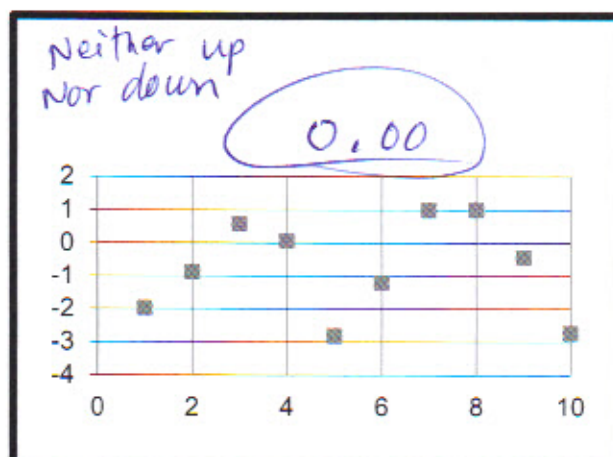 Neither up
Nor down
0.00
2
1
0
-1
-2
-3
-4
0 2 4 6 8 10